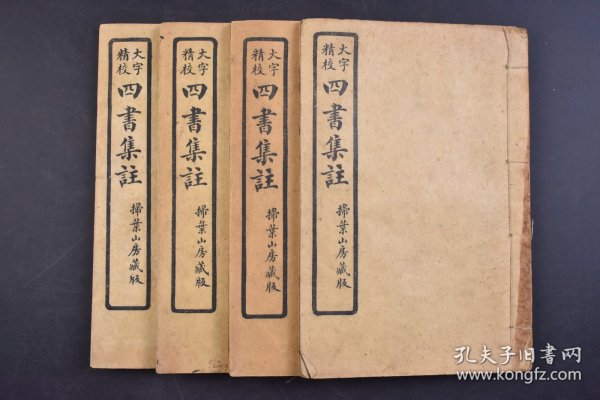 大字
精校
四書集註
掃葉山房藏版
大字
精校
四書集註
掃葉山房藏版
大字
精校
四書集註
掃葉山房藏版
大字
精校
四書集註
掃葉山房藏版
孔夫子旧書网
www.kongfz.com